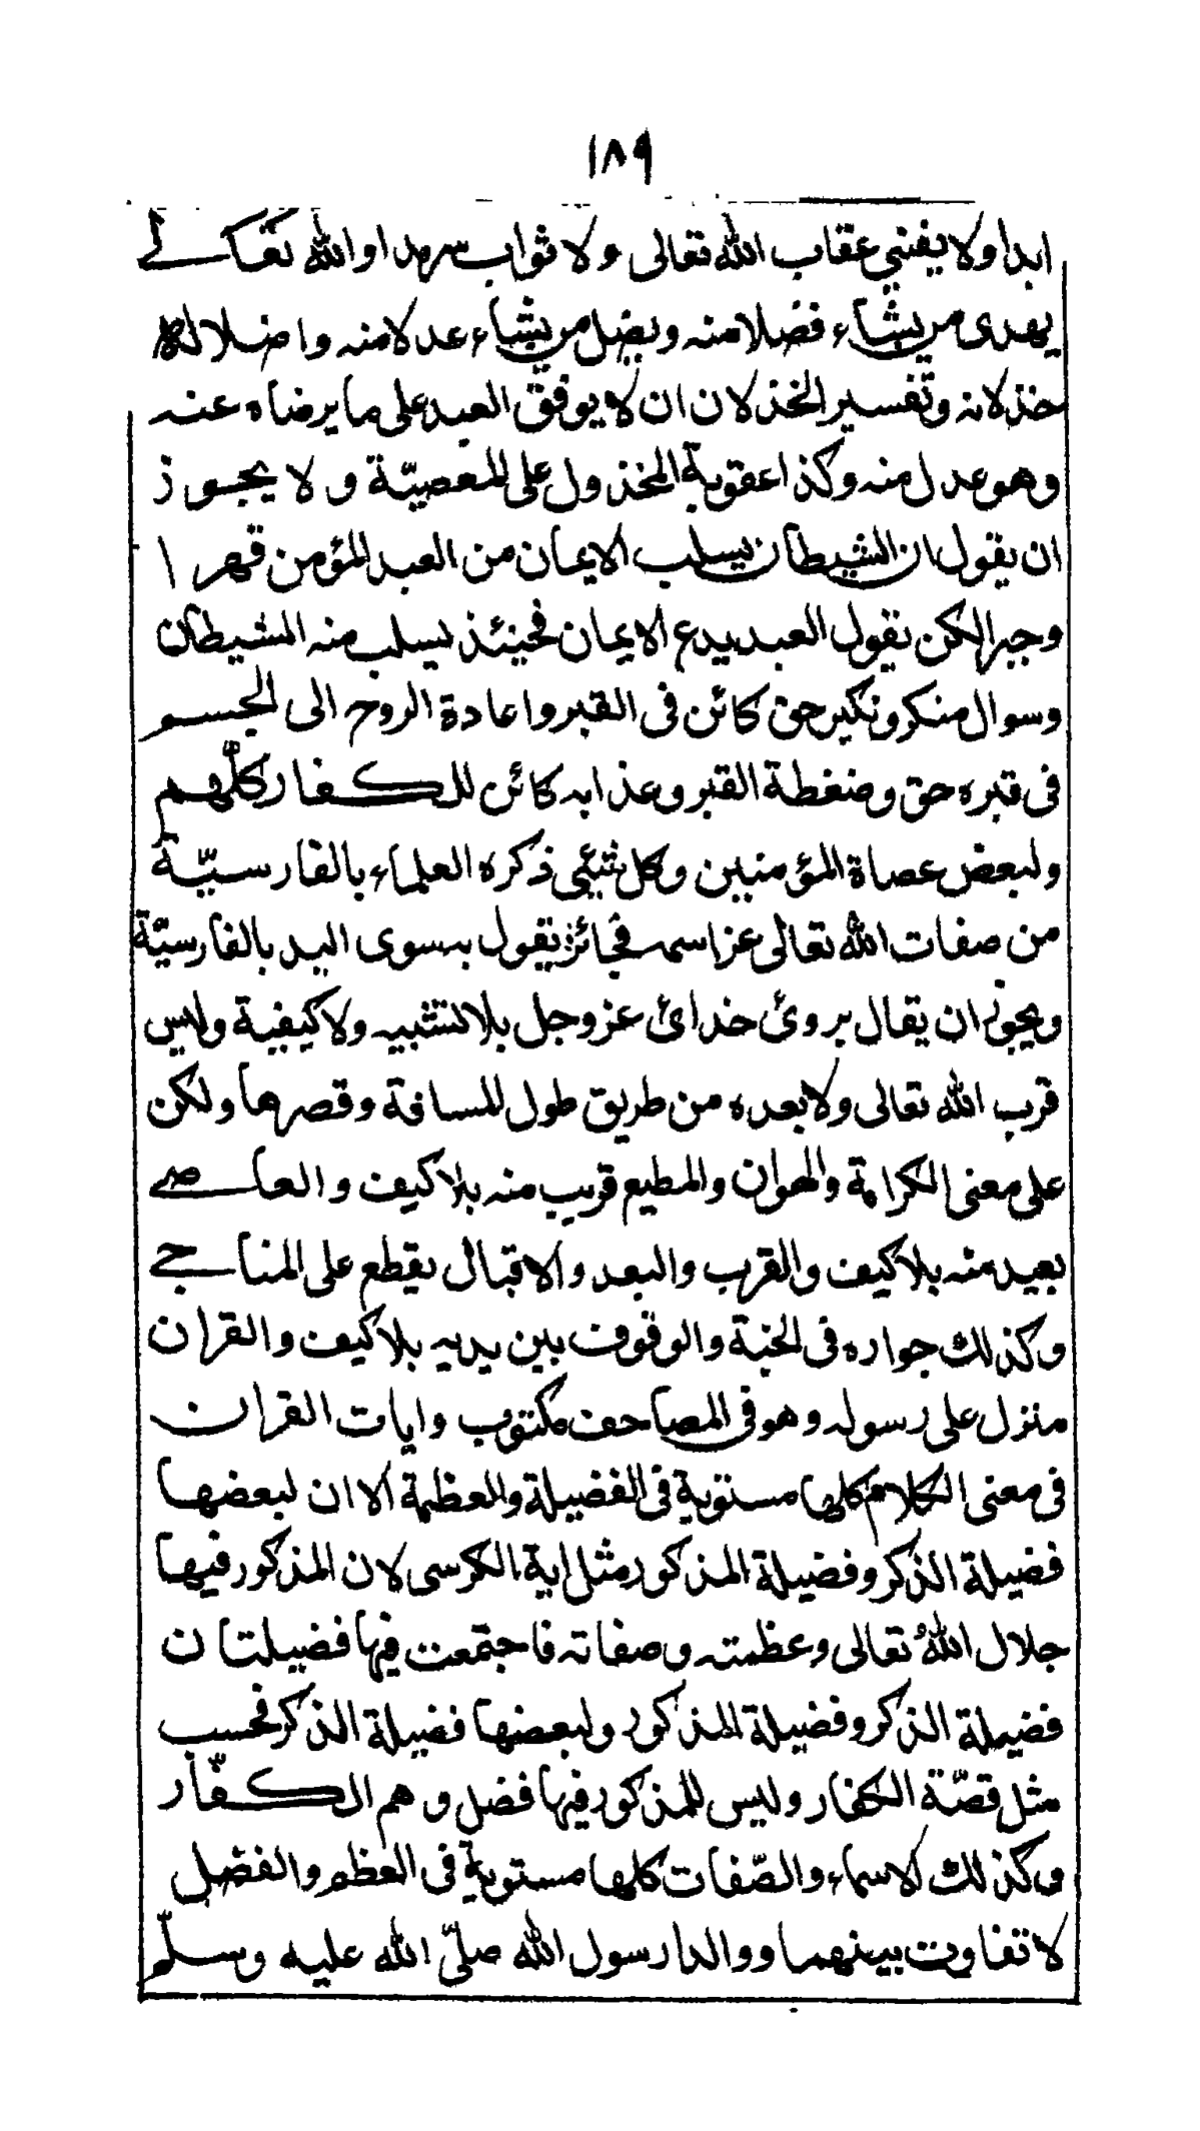 ١٨٩
ابدا ولا يفنى عقاب الله تعالى ولا ثواب سرمدا والله تعالى
يهدى من يشاء فضلا منه ويضل من يشاء عدلا منه واضلاله
خذلانه وتفسير الخذلان ان لا يوفق العبد على ما يرضاه عنه
وهو عدل منه وكذا عقوبة المخذول على المعصيّة ولا يجوز
ان يقول ان الشيطان يسلب الايمان من العبد المؤمن قهرا
وجبرا لكن يقول العبد يدع الايمان فحينئذ يسلب منه الشيطان
وسوال منكر ونكير حق كائن فى القبر واعادة الروح الى الجسم
فى قبره حق وضغطة القبر وعذابه كائن للكفار كلّهم
ولبعض عصاة المؤمنين وكل شئى ذكره العلماء بالفارسيّة
من صفات الله تعالى عز اسمه فجائز يقول به سوى اليد بالفارسيّة
ويجوز ان يقال بروئ خدائ عز وجل بلا تشبيه ولا كيفية وليس
قرب الله تعالى ولا بعده من طريق طول المسافة وقصرها ولكن
على معنى الكرامة والهوان والمطيع قريب منه بلا كيف والعاصى
بعيد منه بلا كيف والقرب والبعد والاقبال يقطع على المناجى
وكذلك جواره فى الجنة والوقوف بين يديه بلا كيف والقران
منزل على رسوله وهو فى المصاحف مكتوب وايات القران
فى معنى الكلام كلها مستوية فى الفضيلة والعظمة الا ان لبعضها
فضيلة الذكر وفضيلة المذكور مثل اية الكرسى لان المذكور فيها
جلال اللهُ تعالى وعظمته وصفاته فاجتمعت فيها فضيلتان
فضيلة الذكر وفضيلة المذكور ولبعضها فضيلة الذكر فحسب
مثل قصّة الكفار وليس للمذكور فيها فضل وهم الكفّار
وكذلك الاسماء والصّفات كلها مستوية فى العظم والفضل
لا تفاوت بينهما ووالدا رسول الله صلّى الله عليه وسلّم